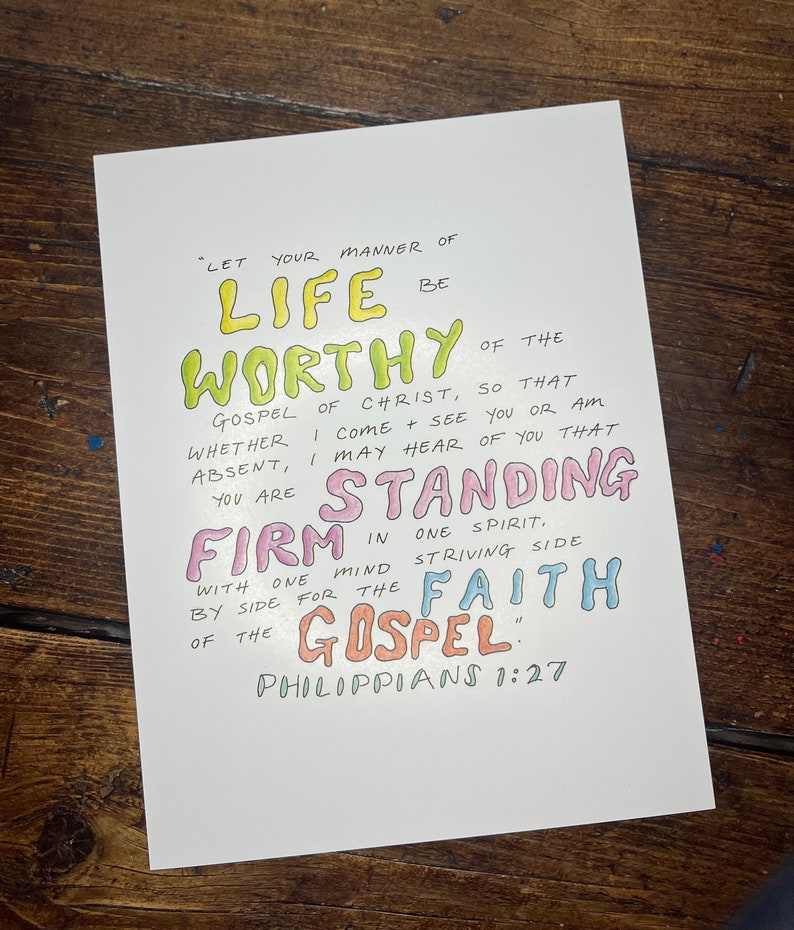 "LET YOUR MANNER OF
LIFE BE
WORTHY OF THE
GOSPEL OF CHRIST, SO THAT
WHETHER I COME + SEE YOU OR AM
ABSENT, I MAY HEAR OF YOU THAT
YOU ARE STANDING
FIRM IN ONE SPIRIT,
WITH ONE MIND STRIVING SIDE
BY SIDE FOR THE FAITH
OF THE GOSPEL."
PHILIPPIANS 1:27